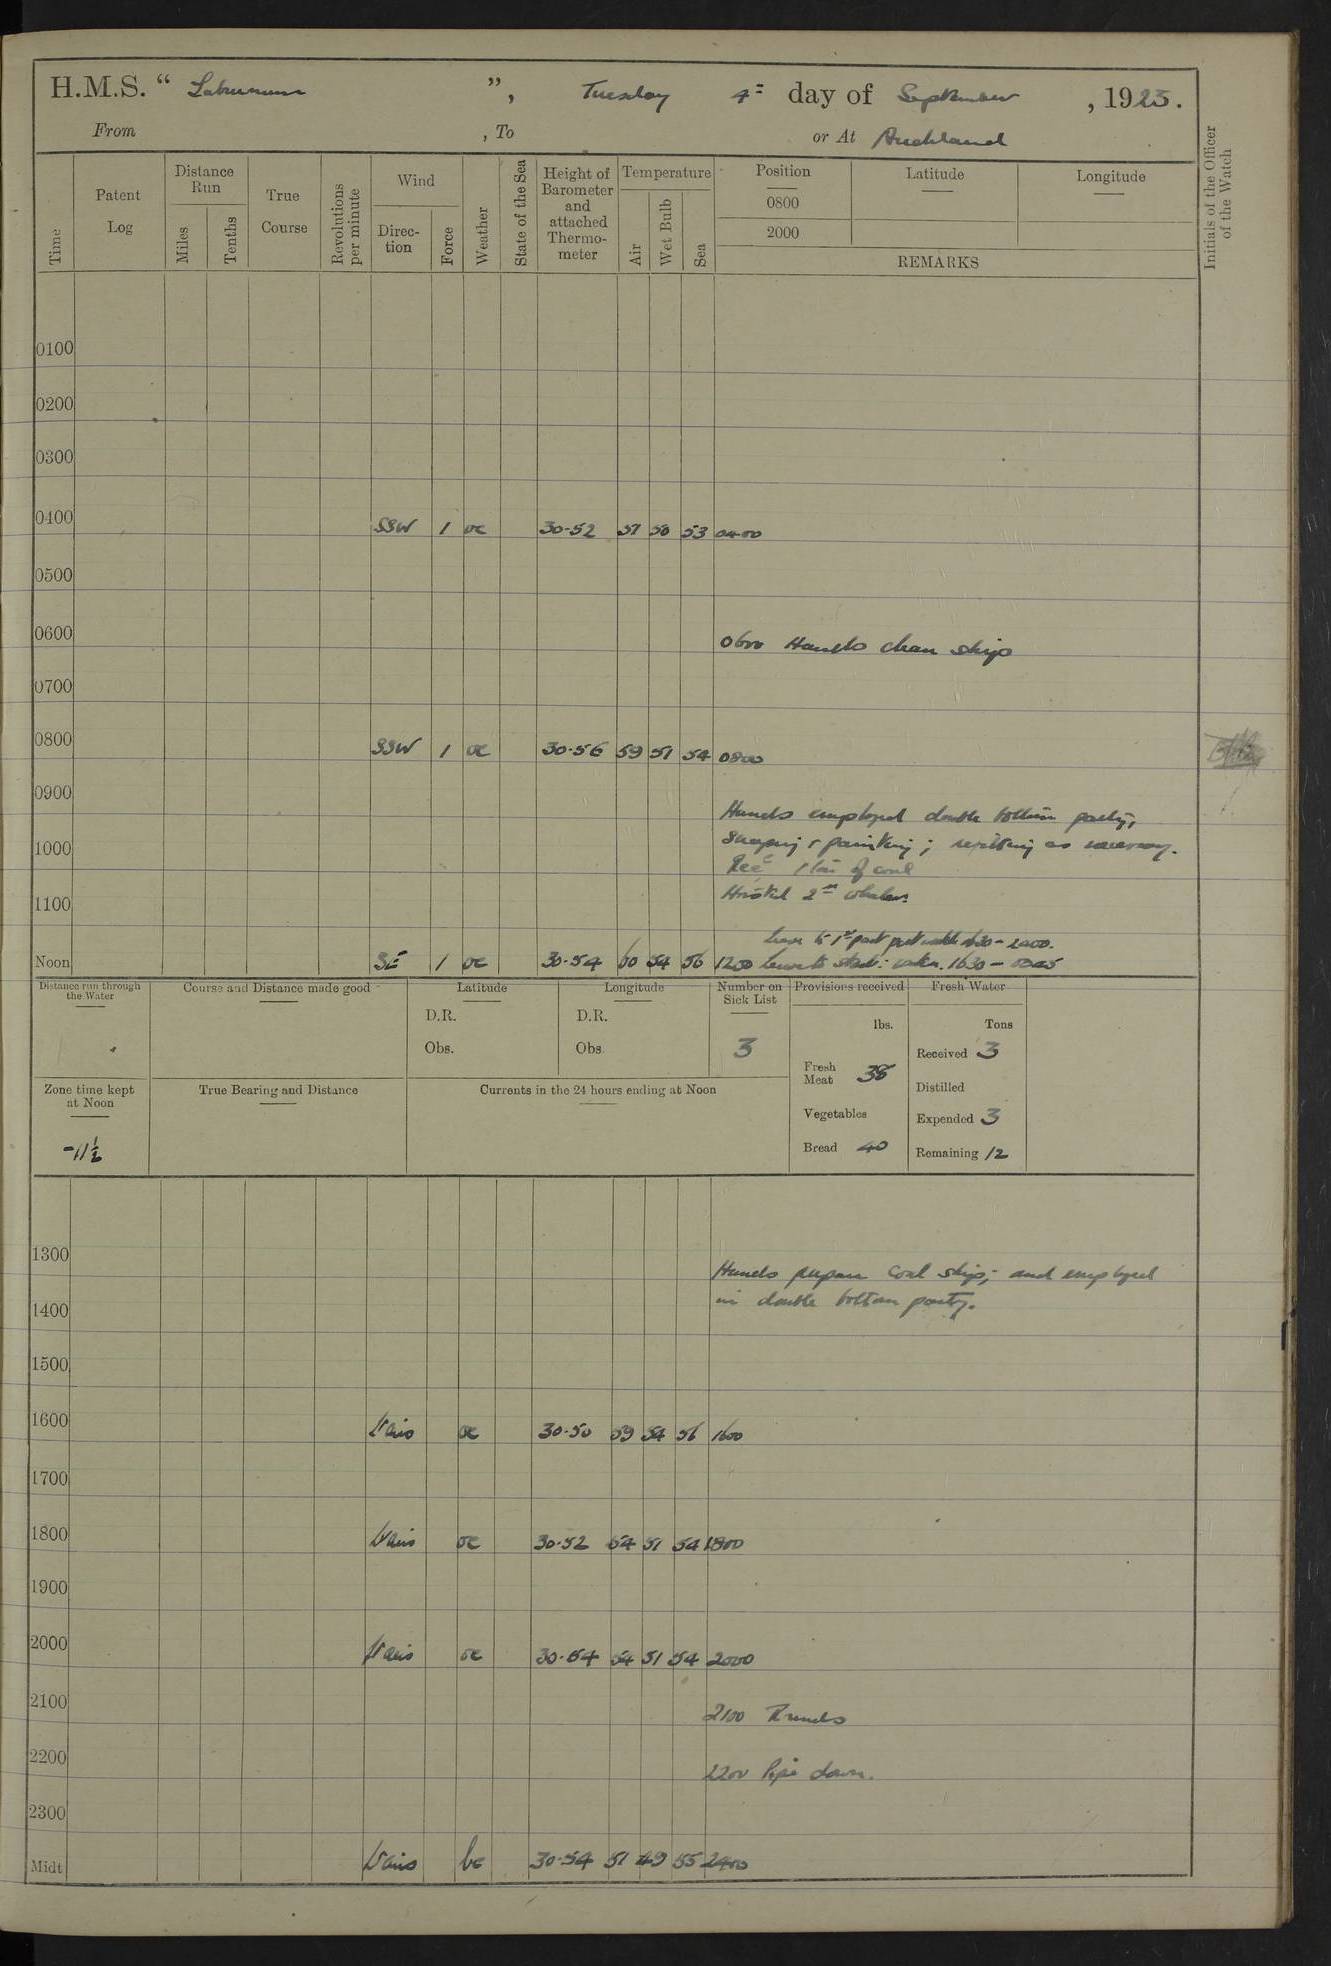 H.M.S. “ Laburnum ”, Tuesday 4th day of September, 1923.
From , To or At Auckland
Time Patent Log Distance Run Miles Tenths True Course Revolutions per minute Wind Direc- tion Force Weather State of the Sea Height of Barometer and attached Thermo- meter Temperature Air Wet Bulb Sea Position 0800 2000 Latitude Longitude
REMARKS
Initials of the Officer of the Watch
0100
0200
0300
0400 SSW 1 oc 30·52 51 50 53 0400
0500
0600 0600 Hands clean ship
0700
0800 SSW 1 oc 30·56 59 51 54 0800
0900
Hands employed double bottom party,
1000 scraping & painting; refitting as necessary.
Recd 1 ton of coal
1100 Hoisted 2nd whaler.
Leave to 1st part port watch 1630 - 2400.
Noon SE 1 oc 30·54 60 54 56 1230 Leave to stbd: watch. 1630 -
Distance run through the Water
Course and Distance made good
Latitude
D.R.
Obs.
Longitude
D.R.
Obs.
Number on Sick List
3
Provisions received
lbs.
Fresh Meat 38
Vegetables
Bread 40
Fresh Water
Tons
Received 3
Distilled
Expended 3
Remaining 12
Zone time kept at Noon
-11½
True Bearing and Distance
Currents in the 24 hours ending at Noon
1300 Hands prepare coal ship; and employed
1400 in double bottom party.
1500
1600 Vars oc 30·50 59 54 56 1600
1700
1800 Vars oc 30·52 54 51 54 1800
1900
2000 Vars oc 30·54 54 51 54 2000
2100 2100 Rounds
2200 2200 Pipe down.
2300
Midt Vars bc 30·54 51 49 55 2400